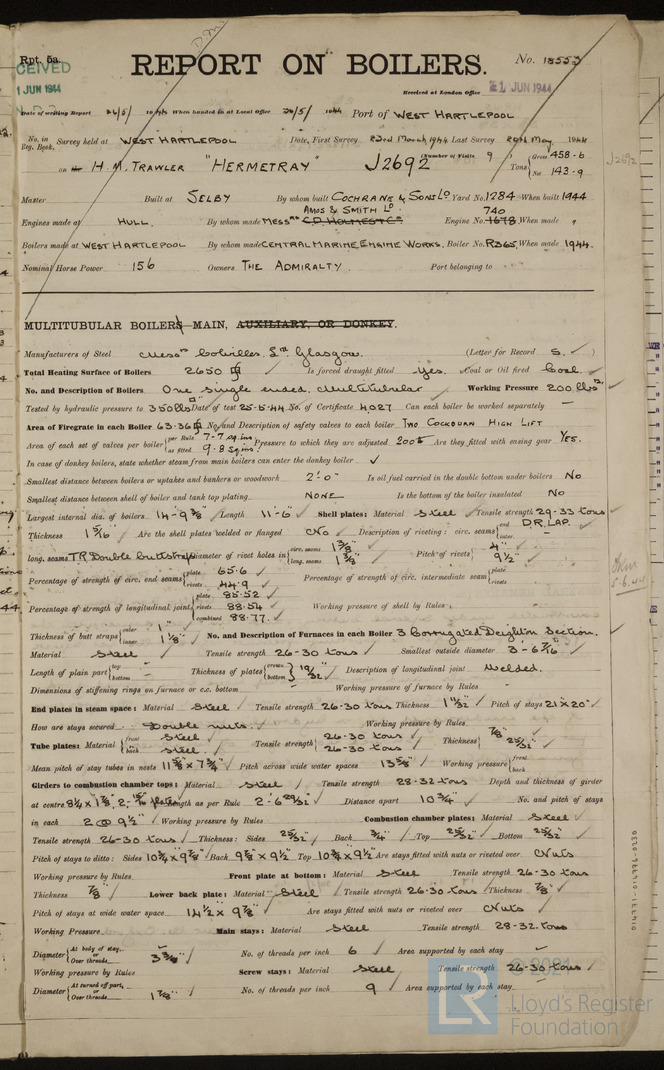 Rpt. 5a.
REPORT ON BOILERS.
No. 18553
CEIVED
1 JUN 1944
Received at London Office
21 JUN 1944
Date of writing Report 26/5/ 1944 When handed in at Local Office 26/5/ 1944 Port of WEST HARTLEPOOL
No. in Reg. Book. Survey held at WEST HARTLEPOOL Date, First Survey 23rd March, 1944 Last Survey May, 1944
on H.M. TRAWLER "HERMETRAY" J2692 (Number of Visits 9 ) Tons { Gross 458.6 Net 143.9
J2692
Master Built at SELBY By whom built COCHRANE & SONS LD Yard No. 1284 When built 1944
AMOS & SMITH LD 740
Engines made at HULL. By whom made MESSRS C.D. HOLMES & CO Engine No. 1678 When made
Boilers made at WEST HARTLEPOOL By whom made CENTRAL MARINE ENGINE WORKS. Boiler No. R365 When made 1944.
Nominal Horse Power 156 Owners THE ADMIRALTY. Port belonging to
MULTITUBULAR BOILERS MAIN, AUXILIARY, OR DONKEY.
Manufacturers of Steel Messrs Colvilles Ld Glasgow. (Letter for Record S. )
Total Heating Surface of Boilers 2650 Is forced draught fitted Yes. Coal or Oil fired Coal
No. and Description of Boilers One single ended, Multitubular Working Pressure 200 lbs
Tested by hydraulic pressure to 350 lbs Date of test 25-5-44 No. of Certificate 4027 Can each boiler be worked separately —
Area of Firegrate in each Boiler 63.36 No. and Description of safety valves to each boiler TWO COCKBURN HIGH LIFT
Area of each set of valves per boiler { per Rule 7.7 sq. ins as fitted 9.8 sq ins. Pressure to which they are adjusted 200 Are they fitted with easing gear YES.
In case of donkey boilers, state whether steam from main boilers can enter the donkey boiler ✓
Smallest distance between boilers or uptakes and bunkers or woodwork 2'.0" Is oil fuel carried in the double bottom under boilers No
Smallest distance between shell of boiler and tank top plating NONE Is the bottom of the boiler insulated No
Largest internal dia. of boilers 14'-9 3/8" Length 11'-6" Shell plates: Material Steel Tensile strength 29-33 tons
Thickness 1 5/16" Are the shell plates welded or flanged No Description of riveting: circ. seams { end D.R. LAP. inter. —
long. seams T.R. Double buttstraps Diameter of rivet holes in { circ. seams 1 3/8" long. seams 1 3/8" Pitch of rivets { 4" 9 1/2"
Percentage of strength of circ. end seams { plate 65.6 rivets 44.9 Percentage of strength of circ. intermediate seam { plate rivets
Percentage of strength of longitudinal joint { plate 85.52 rivets 88.54 combined 88.77. Working pressure of shell by Rules
Thickness of butt straps { outer 1" inner 1 1/8" No. and Description of Furnaces in each Boiler 3 Corrugated Deighton Section.
Material Steel Tensile strength 26-30 tons Smallest outside diameter 3'-6 7/16"
Length of plain part { top bottom Thickness of plates { crown bottom 19/32" Description of longitudinal joint Welded.
Dimensions of stiffening rings on furnace or c.c. bottom Working pressure of furnace by Rules —
End plates in steam space: Material Steel Tensile strength 26-30 tons Thickness 1 11/32" Pitch of stays 21 x 20"
How are stays secured Double nuts. Working pressure by Rules
Tube plates: Material { front Steel back Steel. Tensile strength { 26-30 tons 26-30 tons Thickness { 7/8" 25/32"
Mean pitch of stay tubes in nests 11 5/8" x 7 3/4" Pitch across wide water spaces 13 5/8" Working pressure { front back
Girders to combustion chamber tops: Material Steel Tensile strength 28-32 tons Depth and thickness of girder
at centre Length as per Rule 2'-6 29/32" Distance apart 10 3/4" No. and pitch of stays
in each 2 @ 9 1/2" Working pressure by Rules Combustion chamber plates: Material Steel
Tensile strength 26-30 tons Thickness: Sides 25/32" Back 3/4" Top 25/32" Bottom 25/32"
Pitch of stays to ditto: Sides 10 3/4 x 9 7/8" Back 9 5/8 x 9 1/2" Top 10 3/4 x 9 1/2" Are stays fitted with nuts or riveted over Nuts
Working pressure by Rules Front plate at bottom: Material Steel Tensile strength 26-30 tons
Thickness 7/8" Lower back plate: Material Steel Tensile strength 26-30 tons Thickness 7/8"
Pitch of stays at wide water space 14 1/2 x 9 7/8" Are stays fitted with nuts or riveted over Nuts
Working Pressure Main stays: Material Steel Tensile strength 28-32 tons
Diameter { At body of stay, or Over threads No. of threads per inch 6 Area supported by each stay
Working pressure by Rules Screw stays: Material Steel Tensile strength 26-30 tons
Diameter { At turned off part, or Over threads 1 7/8" No. of threads per inch 9 Area supported by each stay
© 2021
LR
Lloyd's Register
Foundation